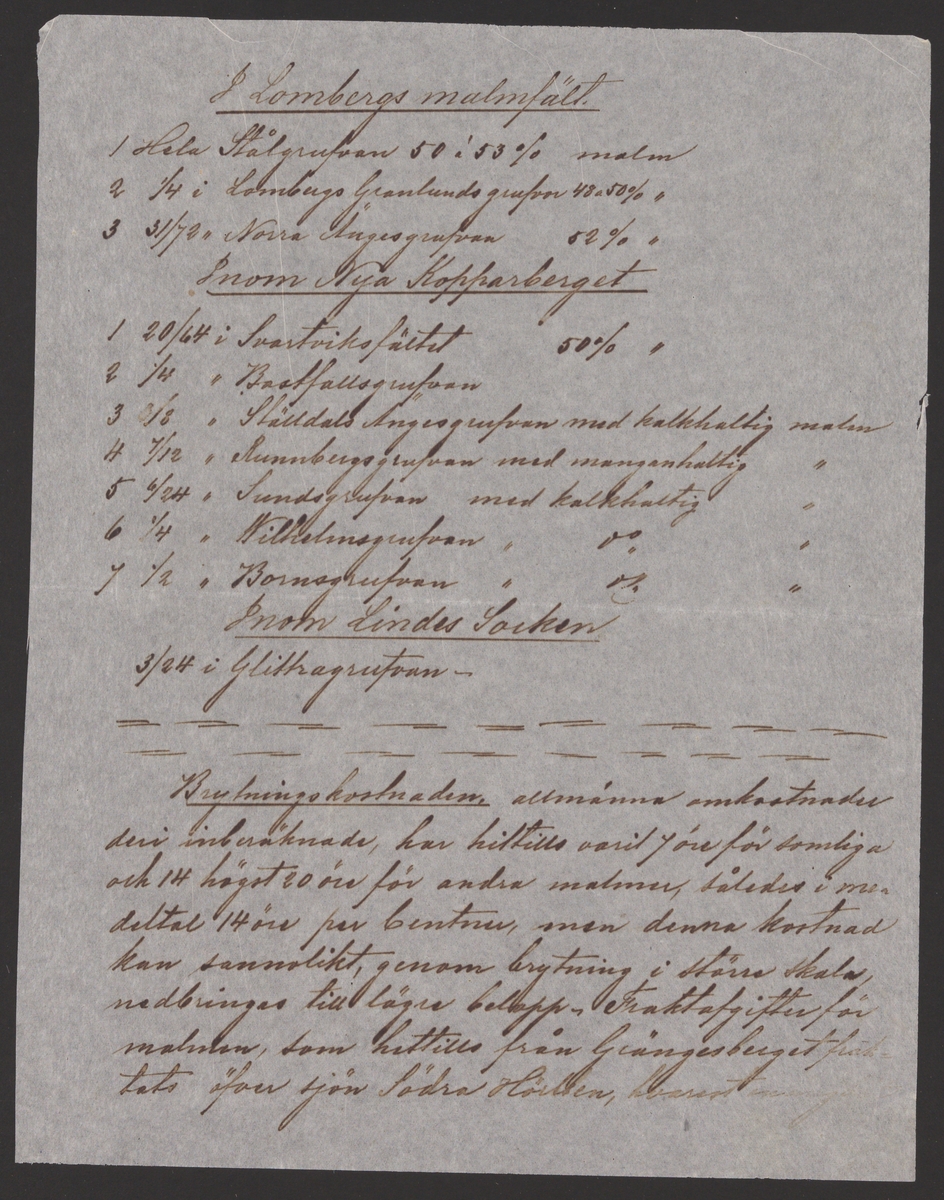 I Lombergs malmfält.
1 Hela Stålgrufvan 50 à 53% malm
2 1/4 i Lombergs Granlundsgrufvor 48 a 50% "
3 31/72 " Norra Ängesgrufvan 52% "
Inom Nya Kopparberget
1 20/64 i Svartviksfältet 50% "
2 1/4 " Bastfallsgrufvan
3 3/8 " Ställdals Ängesgrufvan med kalkhaltig malm
4 7/12 " Runnbergsgrufvan med manganhaltig "
5 6/24 " Sundsgrufvan med kalkhaltig "
6 1/4 " Wilhelmsgrufvan " do "
7 1/2 " Bornsgrufvan " do "
Inom Lindes Socken
3/24 i Glittragrufvan –
Brytningskostnaden, allmänna omkostnader
deri inberäknade, har hittills varit 7 öre för somliga
och 14 högst 20 öre för andra malmer, således i me-
deltal 14 öre per Centner, men denna kostnad
kan sannolikt, genom brytning i större skala,
nedbringas till lägre belopp – Fraktafgifter för
malmen, som hittills från Grängesberget frak-
tats öfver sjön Södra Hörken, hvarest